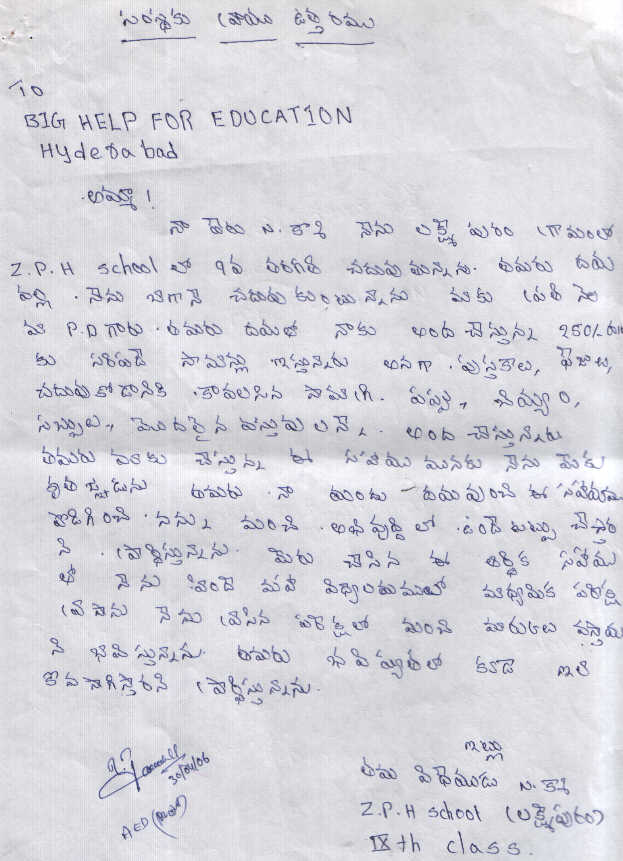 సంరక్షకు వ్రాయు ఉత్తరము
TO
BIG HELP FOR EDUCATION
Hyderabad
అమ్మా !
నా పేరు N. కాశి నేను లక్ష్మీ పురం గ్రామంలో
Z.P.H school లో 9వ తరగతి చదువుతున్నాను. తమరు దయ
వల్ల . నేను బాగానె చదువుకుంటున్నాను మాకు ప్రతి నెల
మా P.D గారు . తమరు దయతో నాకు అంద చేస్తున్న 250/-
కు సరిపడే సామాన్లు ఇస్తున్నారు అనగా . పుస్తకాలు, ఫీజులు,
చదువుకోడానికి . కావలసిన సామాగ్రి. పప్పు, బియ్యం,
సబ్బులు, మొదలైన వస్తువులన్నీ . అంద చేస్తున్నారు
తమరు మాకు చేస్తున్న ఈ సహాయమునకు నేను మీకు
కృతజ్ఞుడును తమరు . నా యందు దయవుంచి ఈ సహాయము
పొడిగించి . నన్ను మంచి . అభివృద్ధి లో . ఉండేటట్లు చేస్తార
ని . ప్రార్థిస్తున్నాను. మీరు చేసిన ఈ ఆర్థిక సహాయ
తో నేను హిందీ మహా విద్యాలయములో మాధ్యమిక పరీక్ష
వ్రాసాను నేను వ్రాసిన పరీక్షలో మంచి మారుకులు వస్తాయ
ని భావిస్తున్నాను. తమరు భవిష్యత్ లో కూడ ఇలా
కొనసాగిస్తారని ప్రార్థిస్తున్నాను.
ఇట్లు
30/04/06
తమ విధేయుడు N. కాశి
AED
Z.P.H school (లక్ష్మీపురం)
IXth class.